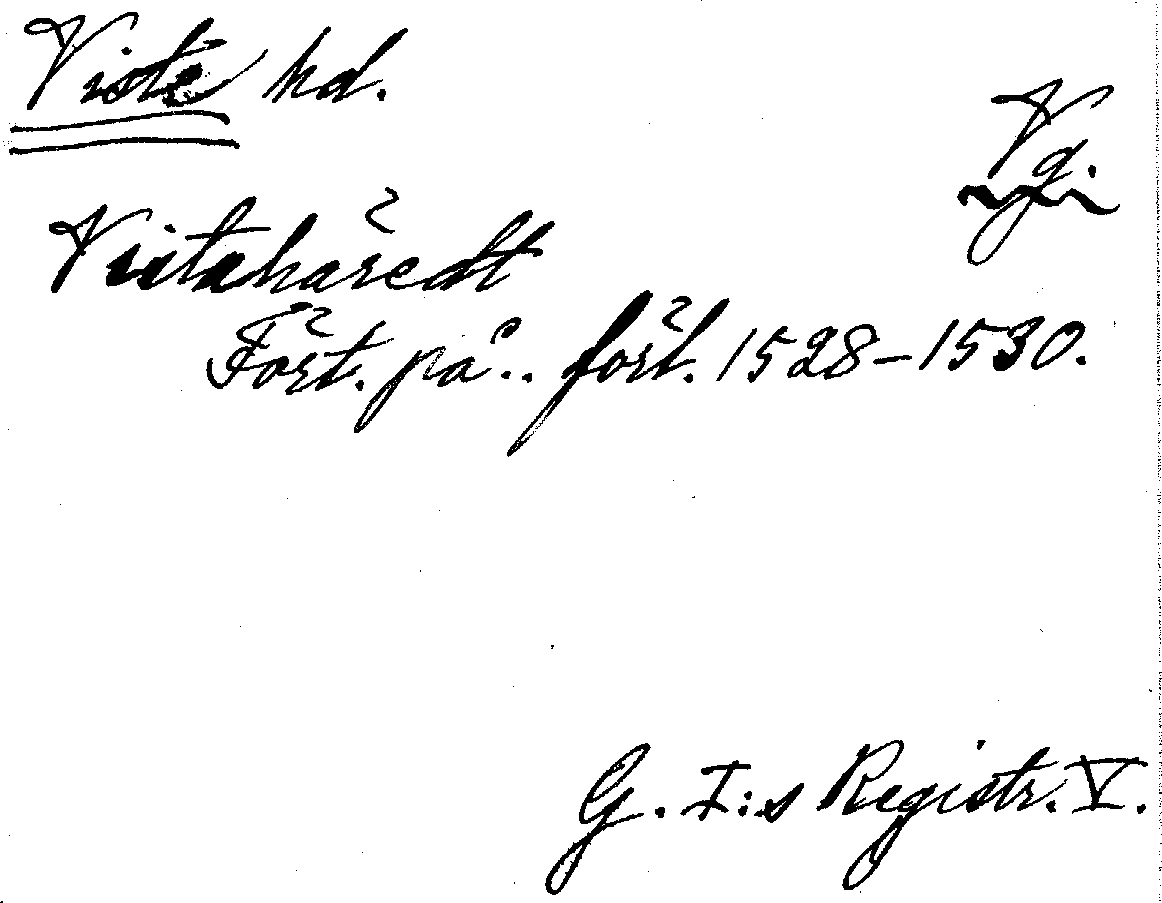 Viste hd.
Vg.
Vistahäredt
Fört. på.. förl. 1528-1530.
G. I:s Registr. V.